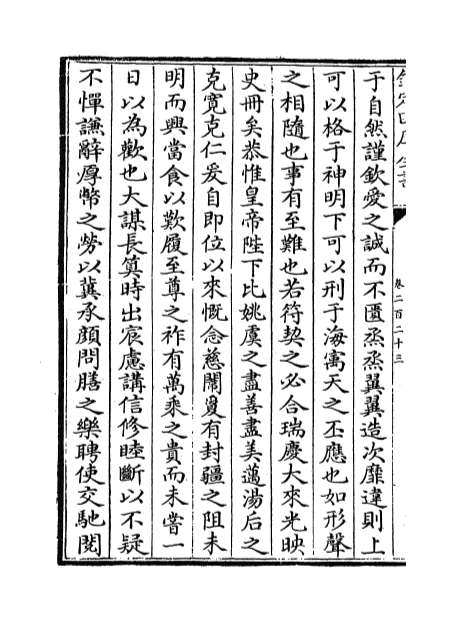 欽定四庫全書
卷二百二十三
于自然謹欽愛之誠而不匱烝烝翼翼造次靡違則上
可以格于神明下可以刑于海㝢天之丕應也如形聲
之相隨也事有至難也若符契之必合瑞慶大來光映
史冊矣恭惟皇帝陛下比姚虞之盡善盡美邁湯后之
克寛克仁爰自即位以來慨念慈闈敻有封疆之阻未
明而興當食以歎履至尊之祚有萬乘之貴而未嘗一
日以為歡也大謀長筭時出宸慮講信修睦斷以不疑
不憚謙辭厚幣之勞以冀承顔問膳之樂聘使交馳閱